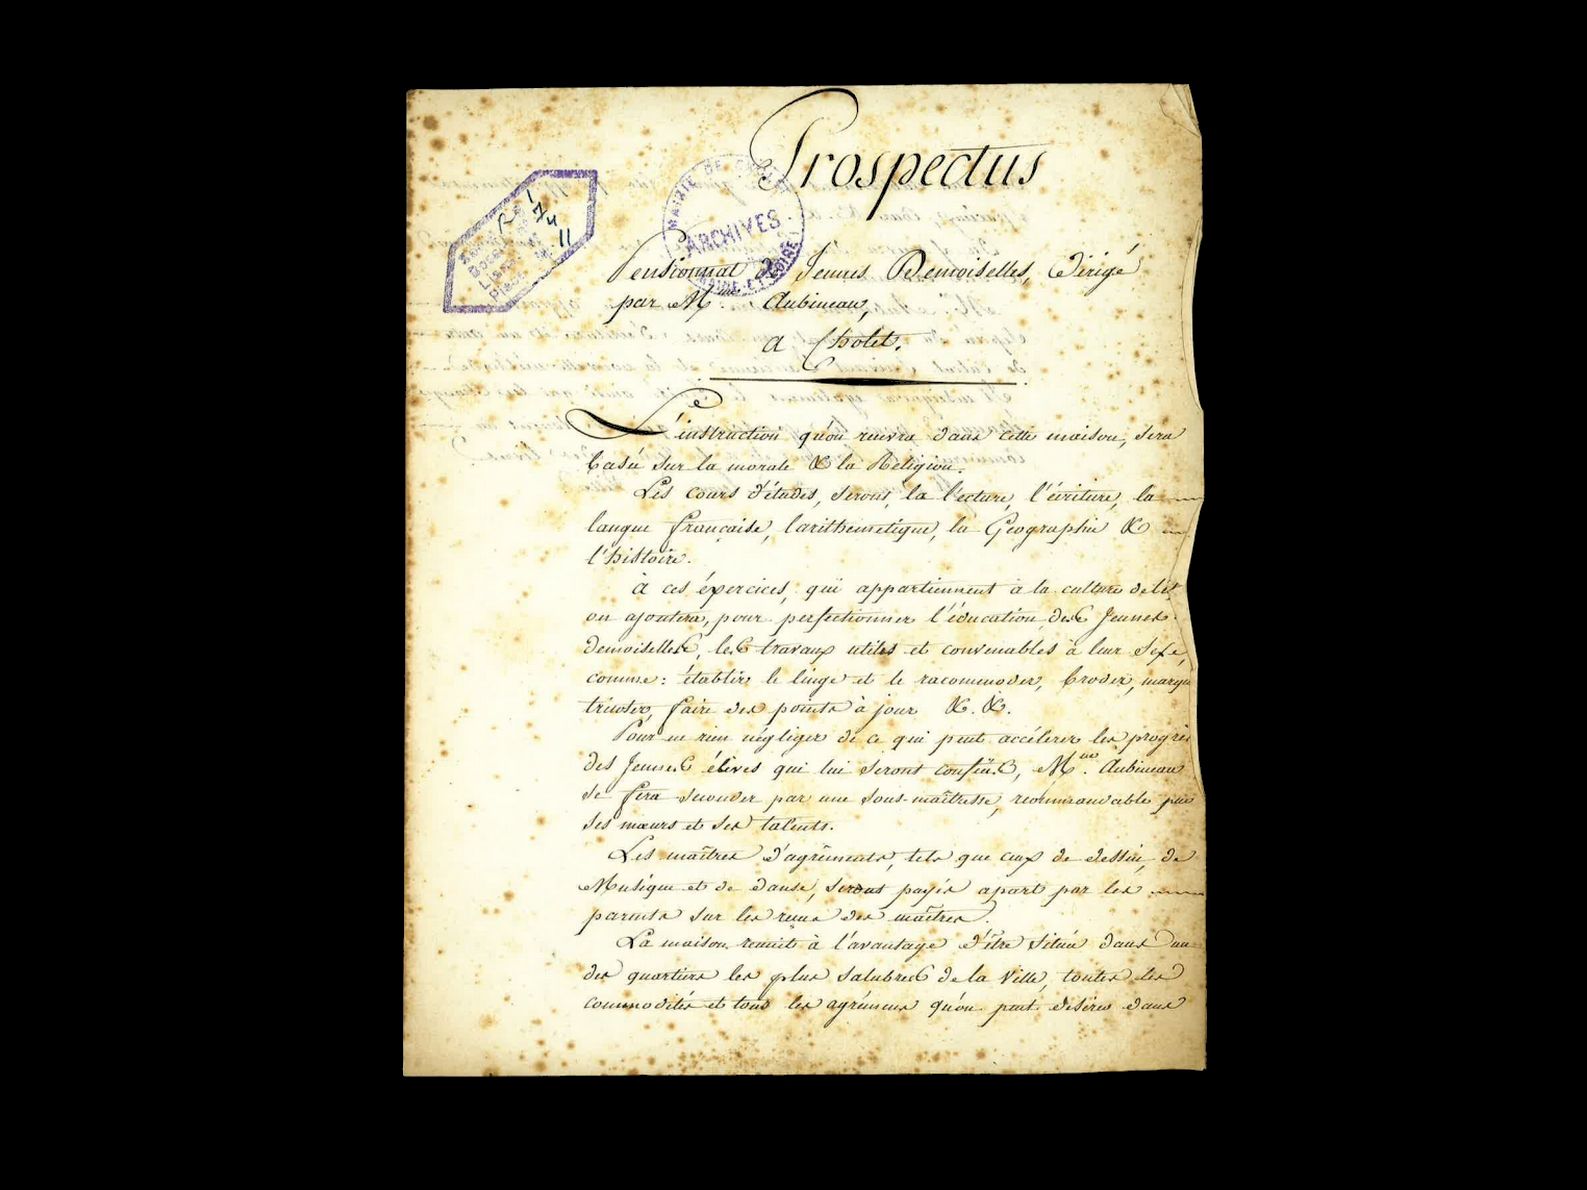 Prospectus
MAIRIE DE CHOLET
ARCHIVES
MAINE-ET-LOIRE
R 1
7/4
11
Pensionnat de Jeunes Demoiselles, Dirigé
par Mme. Aubineau,
a Cholet.
L'instruction qu'on recevra dans cette maison, sera
basée sur la morale & la Religion.
Les cours d'études, seront, la lecture, l'écriture, la
langue française, l'arithemetique, la Geographie &
l'histoire.
à ces éxercices, qui appartiennent à la culture de l'
on ajoutera, pour perfectionner l'éducation des Jeunes
demoiselles, les travaux utiles et convenables à leur Sexe,
comme: établir le linge et le racommoder, broder, marqu
tricoter, faire des points à jour &. &.
Pour ne rien négliger de ce qui peut accélerer les progrès
des Jeunes élèves qui lui seront confiées, Mme. Aubineau
se fera seconder par une sous-maîtresse, recommandable par
ses mœurs et ses talents.
Les maîtres d'agréments, tels que ceux de dessin, de
Musique et de danse, seront payés apart par les
parents sur les reçus des maîtres.
La maison reunit à l'avantage d'être située dans un
des quartiers les plus salubres de la Ville, toutes les
commodités et tous les agrémens qu'on peut désirer dans